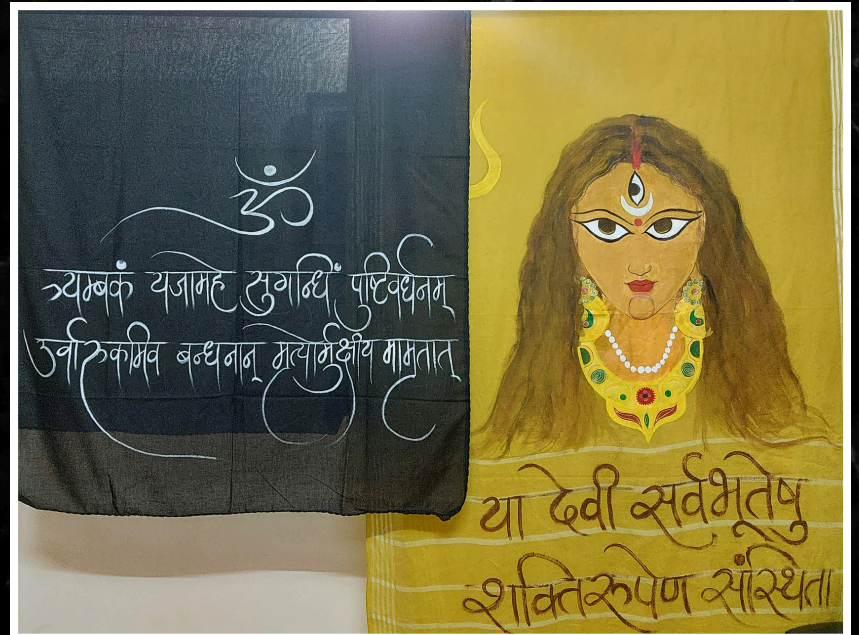 ॐ
त्र्यम्बकं यजामहे सुगन्धिं पुष्टिवर्धनम्
उर्वारुकमिव बन्धनान् म्रत्योर्मुक्षीय माम्रतात्
या देवी सर्वभूतेषु
शक्तिरूपेण संस्थिता